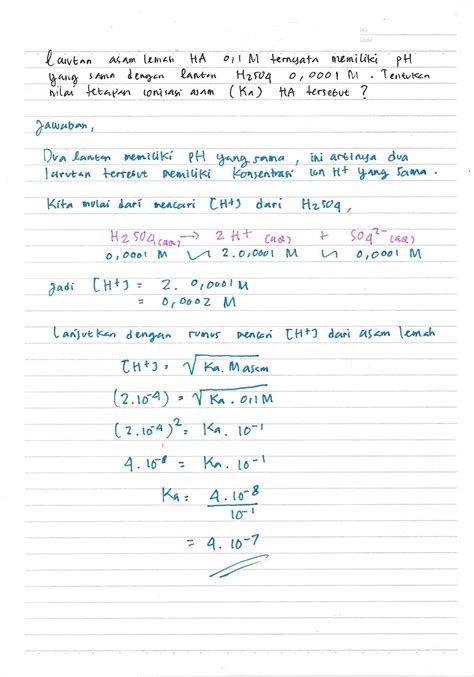 Larutan asam lemah HA 0,1 M ternyata memiliki pH
yang sama dengan larutan H2SO4 0,0001 M. Tentukan
nilai tetapan ionisasi asam (Ka) HA tersebut ?
Jawaban,
Dua larutan memiliki pH yang sama, ini artinya dua
larutan tersebut memiliki konsentrasi ion H+ yang sama.
Kita mulai dari mencari [H+] dari H2SO4,
H2SO4(aq) → 2 H+(aq) + SO4²⁻(aq)
0,0001 M ~ 2.0,0001 M ~ 0,0001 M
Jadi [H+] = 2. 0,0001 M
= 0,0002 M
Lanjutkan dengan rumus mencari [H+] dari asam lemah
[H+] = √Ka. Masam
(2.10⁻⁴) = √Ka. 0,1 M
(2.10⁻⁴)² = Ka. 10⁻¹
4.10⁻⁸ = Ka. 10⁻¹
Ka = 4.10⁻⁸
10⁻¹
= 4.10⁻⁷